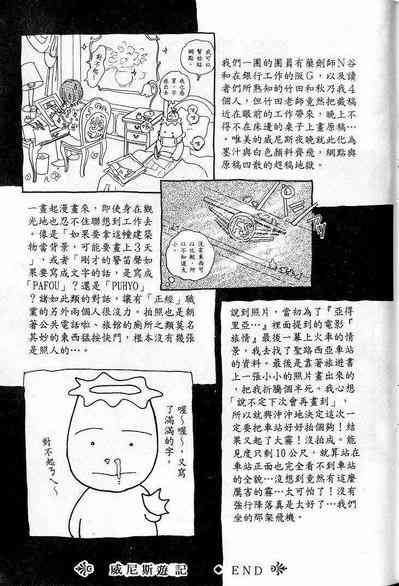 我們一團的團員有藥劑師N谷
和在銀行工作的阪G，以及讀
者們所熟知的竹田和秋乃我4
個人，但竹田老師竟然把截稿
近在眼前的工作帶來，晚上不
得不在床邊的桌子上畫原稿…
…唯美的威尼斯夜晚就此化為
墨汁與白色顏料齊飛，網點與
原稿四散的趕稿地獄。
對不起
我可以
幫你貼
網點。
沒有東西可
以比較，所
以不知道大
小。
一畫起漫畫來，即使身在觀
光地也忍不住聯想到工作去
。像是「如果要拿這幢建築
物當背景，可能要畫上3天
」，或者「剛才的警笛聲如
果要寫成文字的話，是寫成
「PAFOU」？還是「PUHYO」
？諸如此類的對話，讓有「正經」職
業的另外兩個人很沒力。拍照也是朝
著公共電話啦、旅館的廁所之類莫名
其妙的東西猛按快門，根本沒有幾張
是照人的…。
說到照片，當初為了『亞得
里亞…』裡面提到的電影「
旅情」最後一幕上火車的情
景，我去找了聖路西亞車站
的資料。最後是靠著旅遊書
上一張小小的照片畫出來的
，把我折騰個半死。我心想
「說不定下次會再畫到」，
所以就興沖沖地決定這一次
一定要把車站好好拍個夠！結
果又起了大霧！沒拍成。能
見度只剩10公尺，就算站在
車站正面也完全看不到車站
的全貌…沒想到竟然有這麼
厲害的霧…太可怕了！沒有
強行降落真是太好了…我們
坐的那架飛機。
喔～喔～，又寫
了滿滿的字。
對不起ㄋㄟ～
威尼斯遊記
END